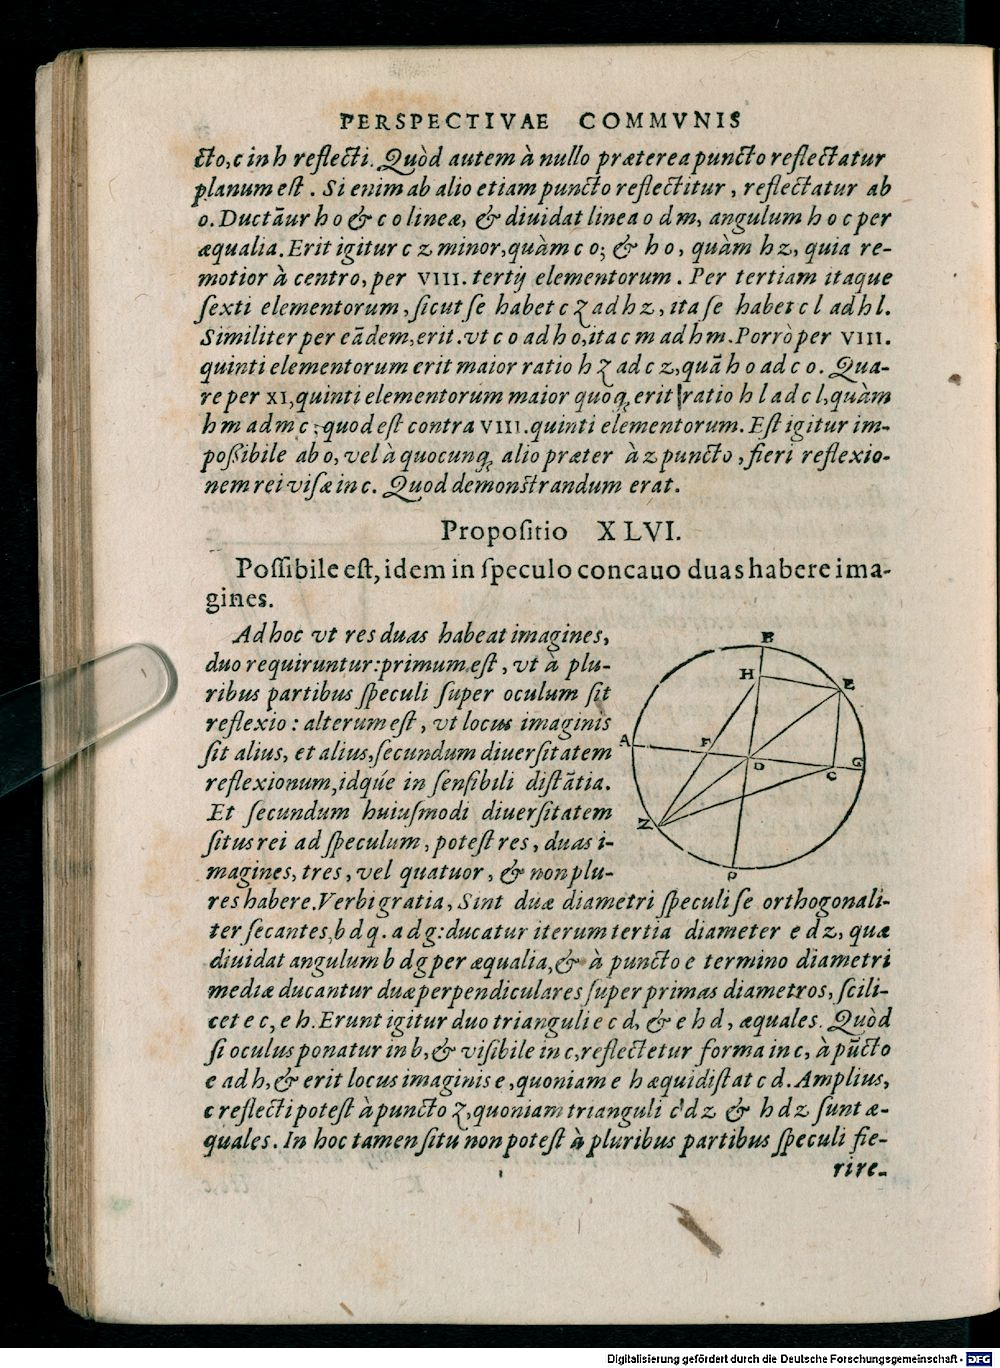 PERSPECTIVAE COMMVNIS
cto, c in h reflecti. Quòd autem à nullo præterea puncto reflectatur
planum est. Si enim ab alio etiam puncto reflectitur, reflectatur ab
o. Ductãur h o & c o lineæ, & diuidat linea o d m, angulum h o c per
æqualia. Erit igitur c z minor, quàm c o; & h o, quàm h z, quia re-
motior à centro, per VIII. tertij elementorum. Per tertiam itaque
sexti elementorum, sicut se habet c z ad h z, ita se habet c l ad h l.
Similiter per eãdem, erit. vt c o ad h o, ita c m ad h m. Porrò per VIII.
quinti elementorum erit maior ratio h z ad c z, quã h o ad c o. Qua-
re per XI, quinti elementorum maior quoq; erit ratio h l ad c l, quàm
h m ad m c: quod est contra VIII. quinti elementorum. Est igitur im-
poßibile ab o, vel à quocunq; alio præter à z puncto, fieri reflexio-
nem rei visæ in c. Quod demonstrandum erat.
Propositio XLVI.
Possibile est, idem in speculo concauo duas habere ima-
gines.
Ad hoc vt res duas habeat imagines,
duo requiruntur: primum est, vt à plu-
ribus partibus speculi super oculum sit
reflexio: alterum est, vt locus imaginis
sit alius, et alius, secundum diuersitatem
reflexionum, idqúe in sensibili distãtia.
Et secundum huiusmodi diuersitatem
situs rei ad speculum, potest res, duas i-
magines, tres, vel quatuor, & non plu-
res habere. Verbi gratia, Sint duæ diametri speculi se orthogonali-
ter secantes, b d q. a d g: ducatur iterum tertia diameter e d z, quæ
diuidat angulum b d g per æqualia, & à puncto e termino diametri
mediæ ducantur duæ perpendiculares super primas diametros, scili-
cet e c, e h. Erunt igitur duo trianguli e c d, & e h d, æquales. Quòd
si oculus ponatur in b, & visibile in c, reflectetur forma in c, à pũcto
e ad h, & erit locus imaginis e, quoniam e h æquidistat c d. Amplius,
c reflecti potest à puncto z, quoniam trianguli c d z & h d z sunt æ-
quales. In hoc tamen situ non potest à pluribus partibus speculi fie-
rire-
B
H
E
A
F
D
C
G
Z
P
Digitalisierung gefördert durch die Deutsche Forschungsgemeinschaft - DFG